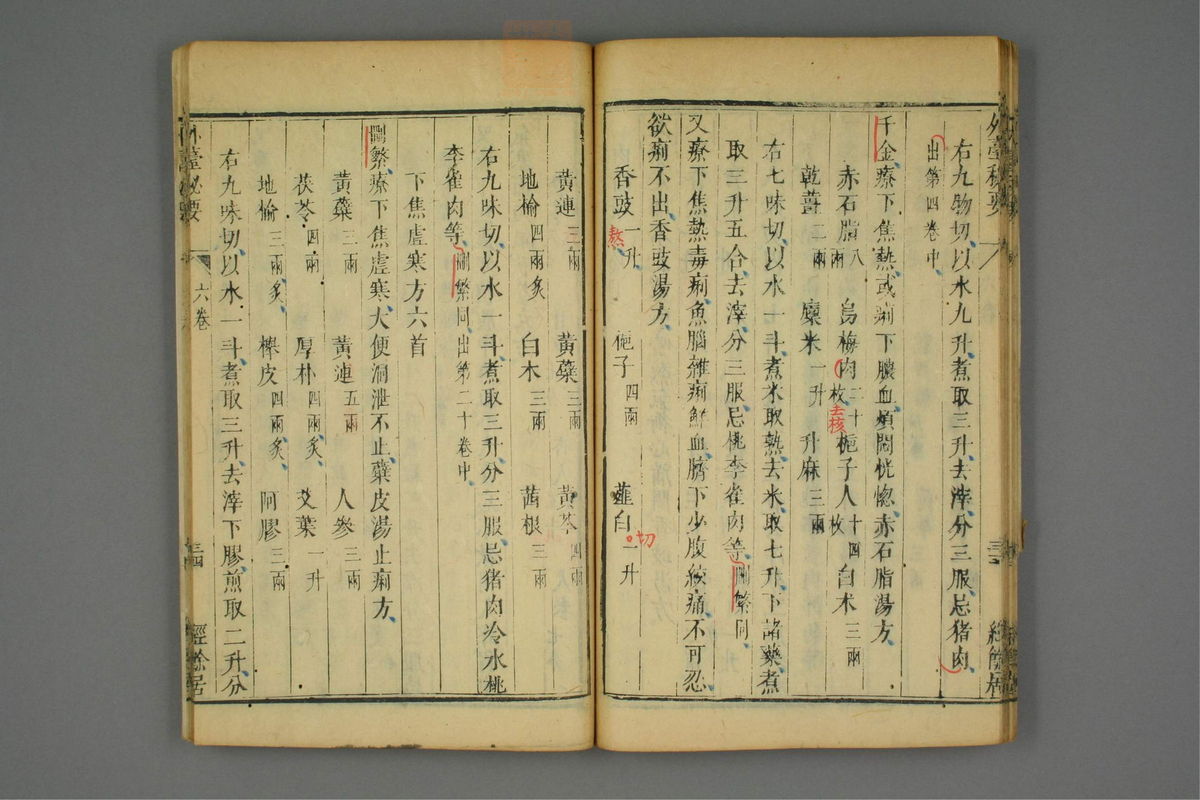 右九物切以水九升煮取三升去滓分三服忌猪肉
出第四卷中
千金療下焦熱或痢下膿血煩悶恍惚赤石脂湯方
赤石脂八兩 烏梅肉二十枚去核 梔子人十四枚 白朮三兩
乾薑二兩 糜米一升 升麻三兩
右七味切以水一斗煮米取熟去米取七升下諸藥煮
取三升五合去滓分三服忌桃李雀肉等刪繁同
又療下焦熱毒痢魚腦雜痢鮮血臍下少腹絞痛不可忍
欲痢不出香豉湯方
香豉一升熬 梔子四兩 薤白一升切
黃連三兩 黃蘗三兩 黃芩四兩
地榆四兩炙 白木三兩 茜根三兩
右九味切以水一斗煮取三升分三服忌猪肉冷水桃
李雀肉等刪繁同出第二十卷中
下焦虛寒方六首
刪繁療下焦虛寒大便洞泄不止蘗皮湯止痢方
黃蘗三兩 黃連五兩 人參三兩
茯苓四兩 厚朴四兩炙 艾葉一升
地榆三兩炙 櫸皮四兩炙 阿膠三兩
右九味切以水一斗煮取三升去滓下膠煎取二升分
外臺秘要 六卷 三四 經餘居